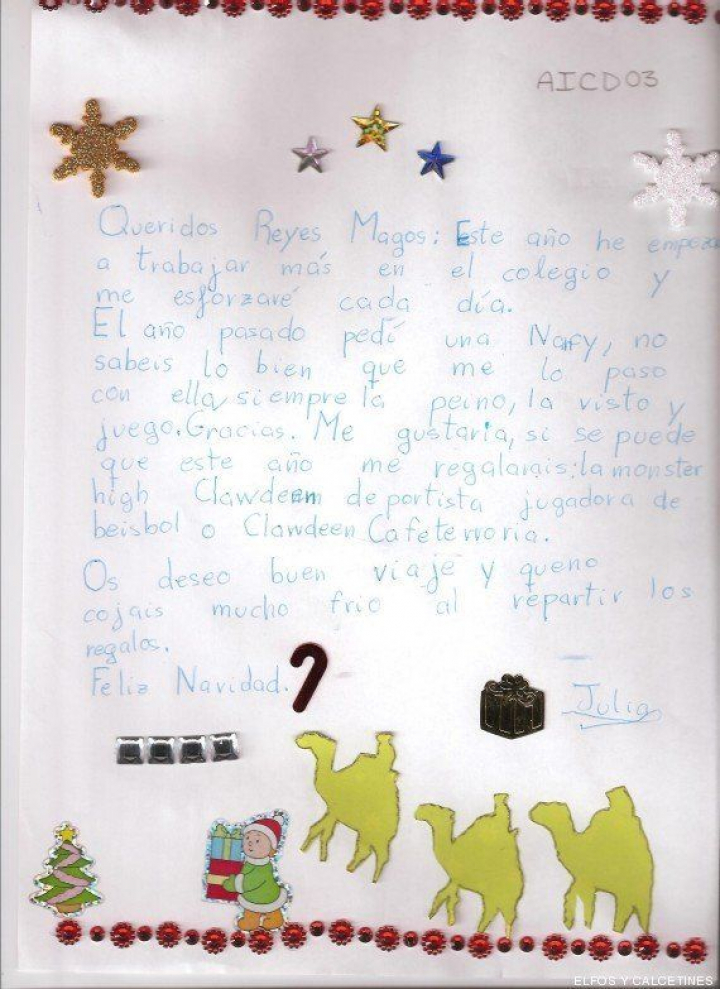 AICD03
Queridos Reyes Magos: Este año he empeza
a trabajar más en el colegio y
me esforzaré cada día.
El año pasado pedí una Nancy, no
sabeis lo bien que me lo paso
con ella, siempre la peino, la visto y
juego. Gracias. Me gustaria, si se puede
que este año me regalarais: la monster
high Clawdeen deportista jugadora de
beisbol o Clawdeen Cafeterroria.
Os deseo buen viaje y queno
cojais mucho frio al repartir los
regalos.
Feliz Navidad.
Julia
ELFOS Y CALCETINES